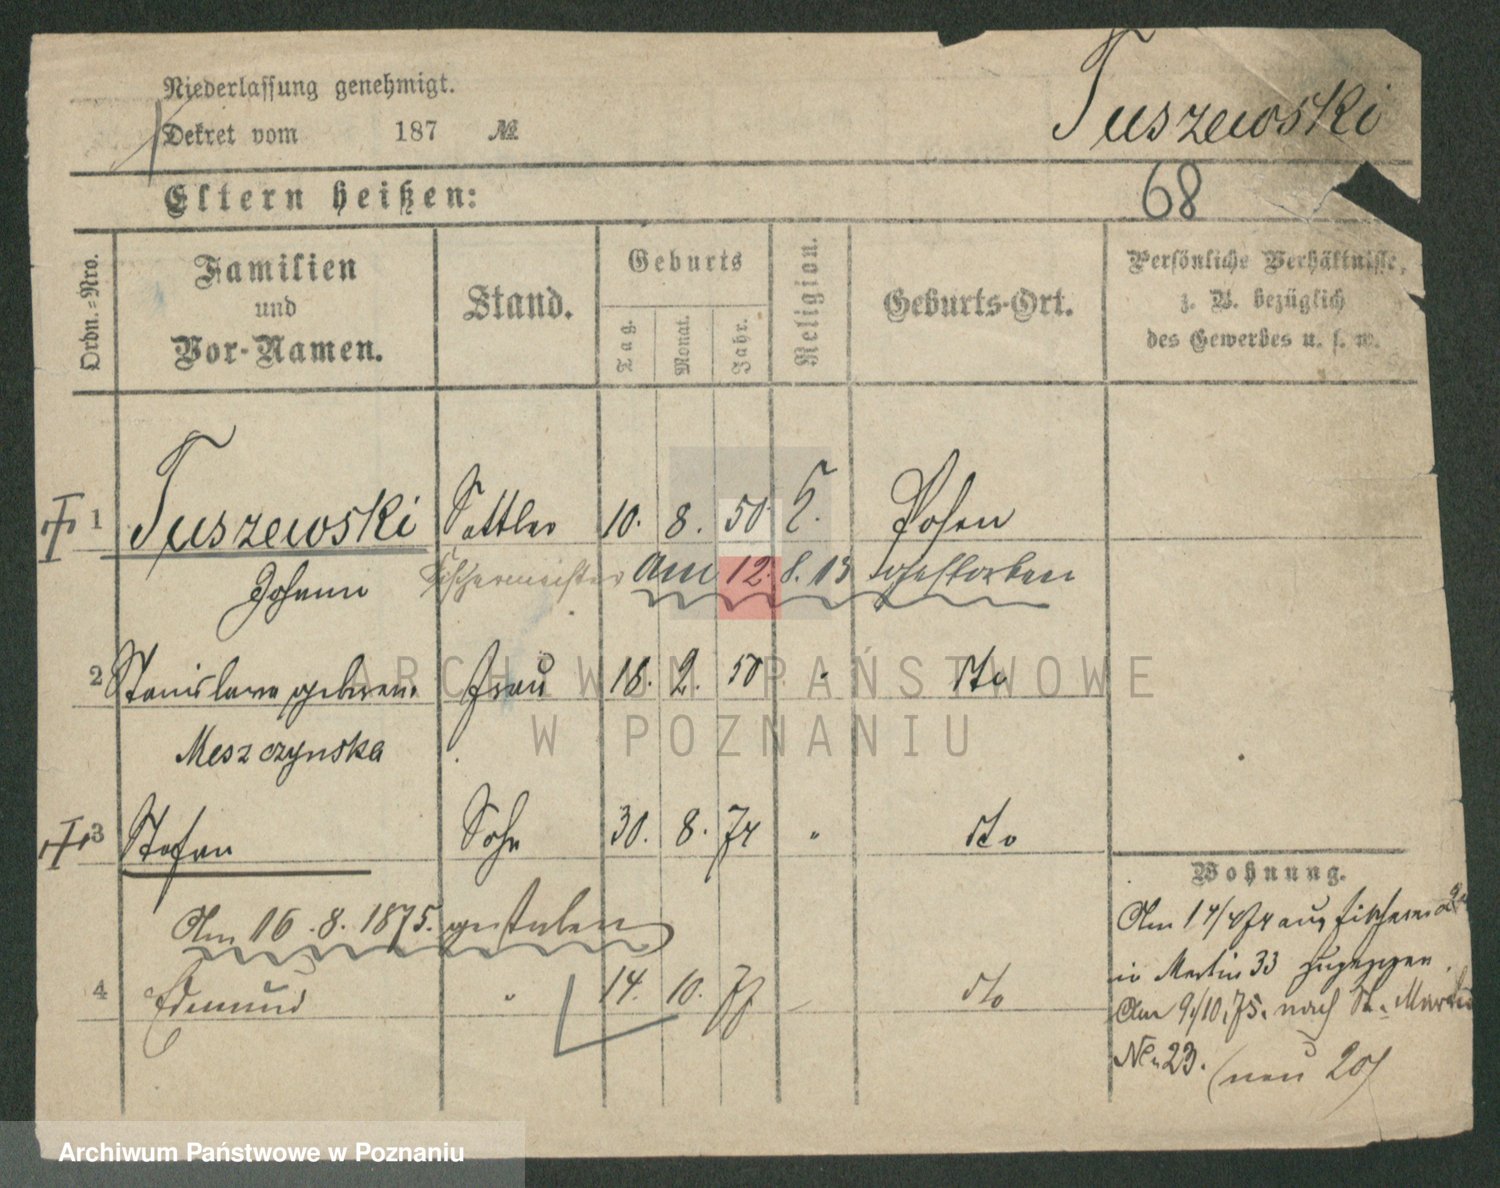 Niederlassung genehmigt.
Dekret vom 187 №
Tuszewski
68
Eltern heißen:
Ordn.-Nro.
Familien
und
Vor-Namen.
Stand.
Geburts
Tag.
Monat.
Jahr.
Religion.
Geburts-Ort.
Persönliche Verhältnisse,
z. B. bezüglich
des Gewerbes u. s. w.
1 Tuszewski Sattler 10. 8. 50 Posen
Johann am 12. 8. 13 gestorben
2 Stanislawa geborene Frau 18. 2. 50 " dto
Meszczynska
3 Stefan Sohn 30. 8. 74 " dto
Am 16.8.1875. gestorben
4 Edmund " 14. 10. 77 dto
Wohnung.
Am aus Fischerei
in Martin 33 zugezogen.
Am 9/10.75. nach St. Martin
No. 23. (neu 20)
ARCHIWUM PAŃSTWOWE
W POZNANIU
Archiwum Państwowe w Poznaniu